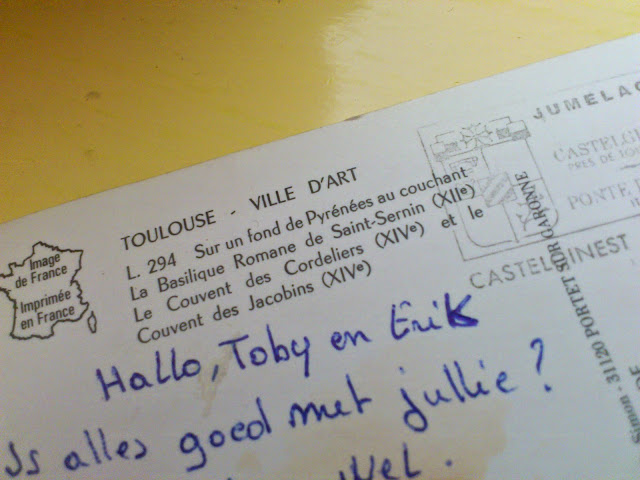 Image
de France
Imprimée
en France
TOULOUSE - VILLE D'ART
L. 294 Sur un fond de Pyrénées au couchant
La Basilique Romane de Saint-Sernin (XIIe)
Le Couvent des Cordeliers (XIVe) et le
Couvent des Jacobins (XIVe)
JUMELAG
CASTELG
PRES DE
PONTE
CASTEL INEST
Simon - 31120 PORTET SUR GARONNE
Hallo, Toby en Erik
Is alles goed met jullie?
Wel.